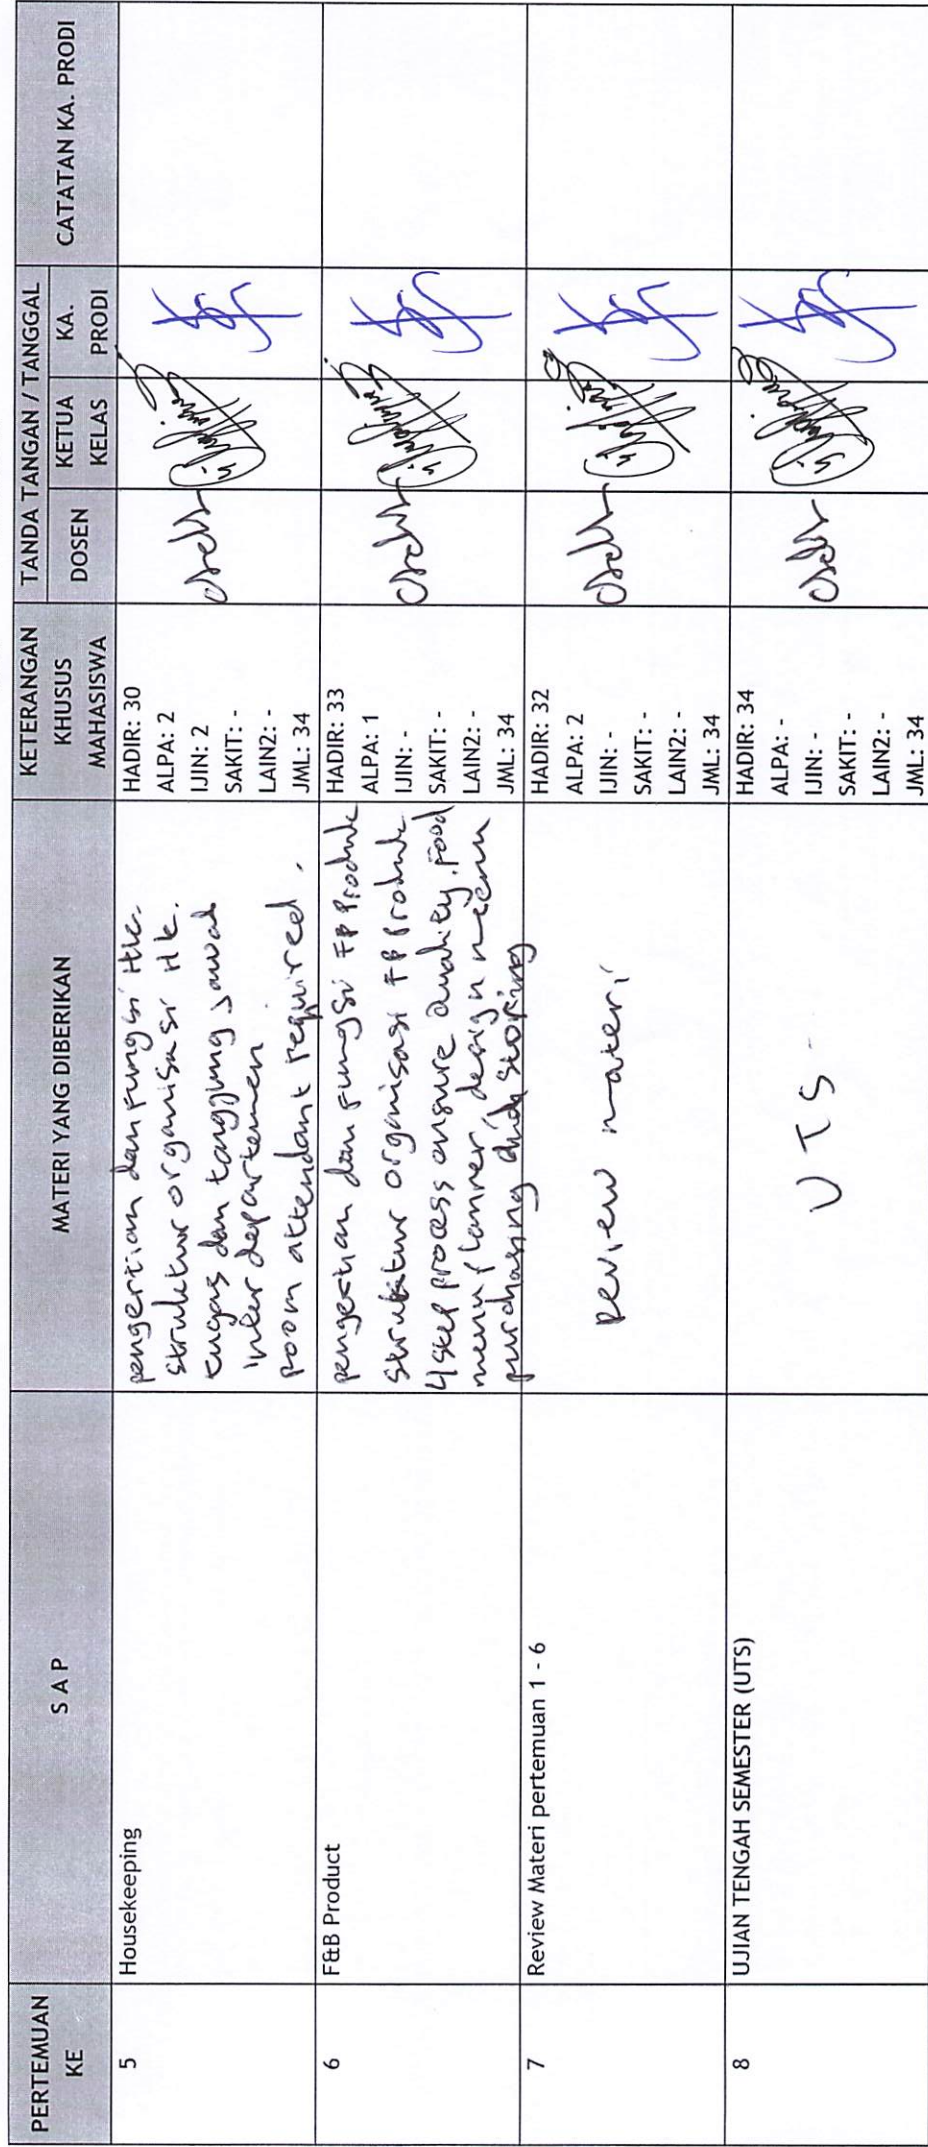 PERTEMUAN
KE
S A P
MATERI YANG DIBERIKAN
KETERANGAN
KHUSUS
MAHASISWA
TANDA TANGAN / TANGGAL
DOSEN
KETUA
KELAS
KA.
PRODI
CATATAN KA. PRODI
5
Housekeeping
pengertian dan fungsi Hk.
struktur organisasi Hk.
tugas dan tanggung jawab
inter departemen
room attendant required.
HADIR: 30
ALPA: 2
IJIN: 2
SAKIT: -
LAIN2: -
JML: 34
6
F&B Product
pengertian dan fungsi FB Produk
struktur organisasi FB Produk
4 step process ensure quality food
menu planner, design menu
purchasing and storing
HADIR: 33
ALPA: 1
IJIN: -
SAKIT: -
LAIN2: -
JML: 34
7
Review Materi pertemuan 1 - 6
Review materi
HADIR: 32
ALPA: 2
IJIN: -
SAKIT: -
LAIN2: -
JML: 34
8
UJIAN TENGAH SEMESTER (UTS)
UTS -
HADIR: 34
ALPA: -
IJIN: -
SAKIT: -
LAIN2: -
JML: 34